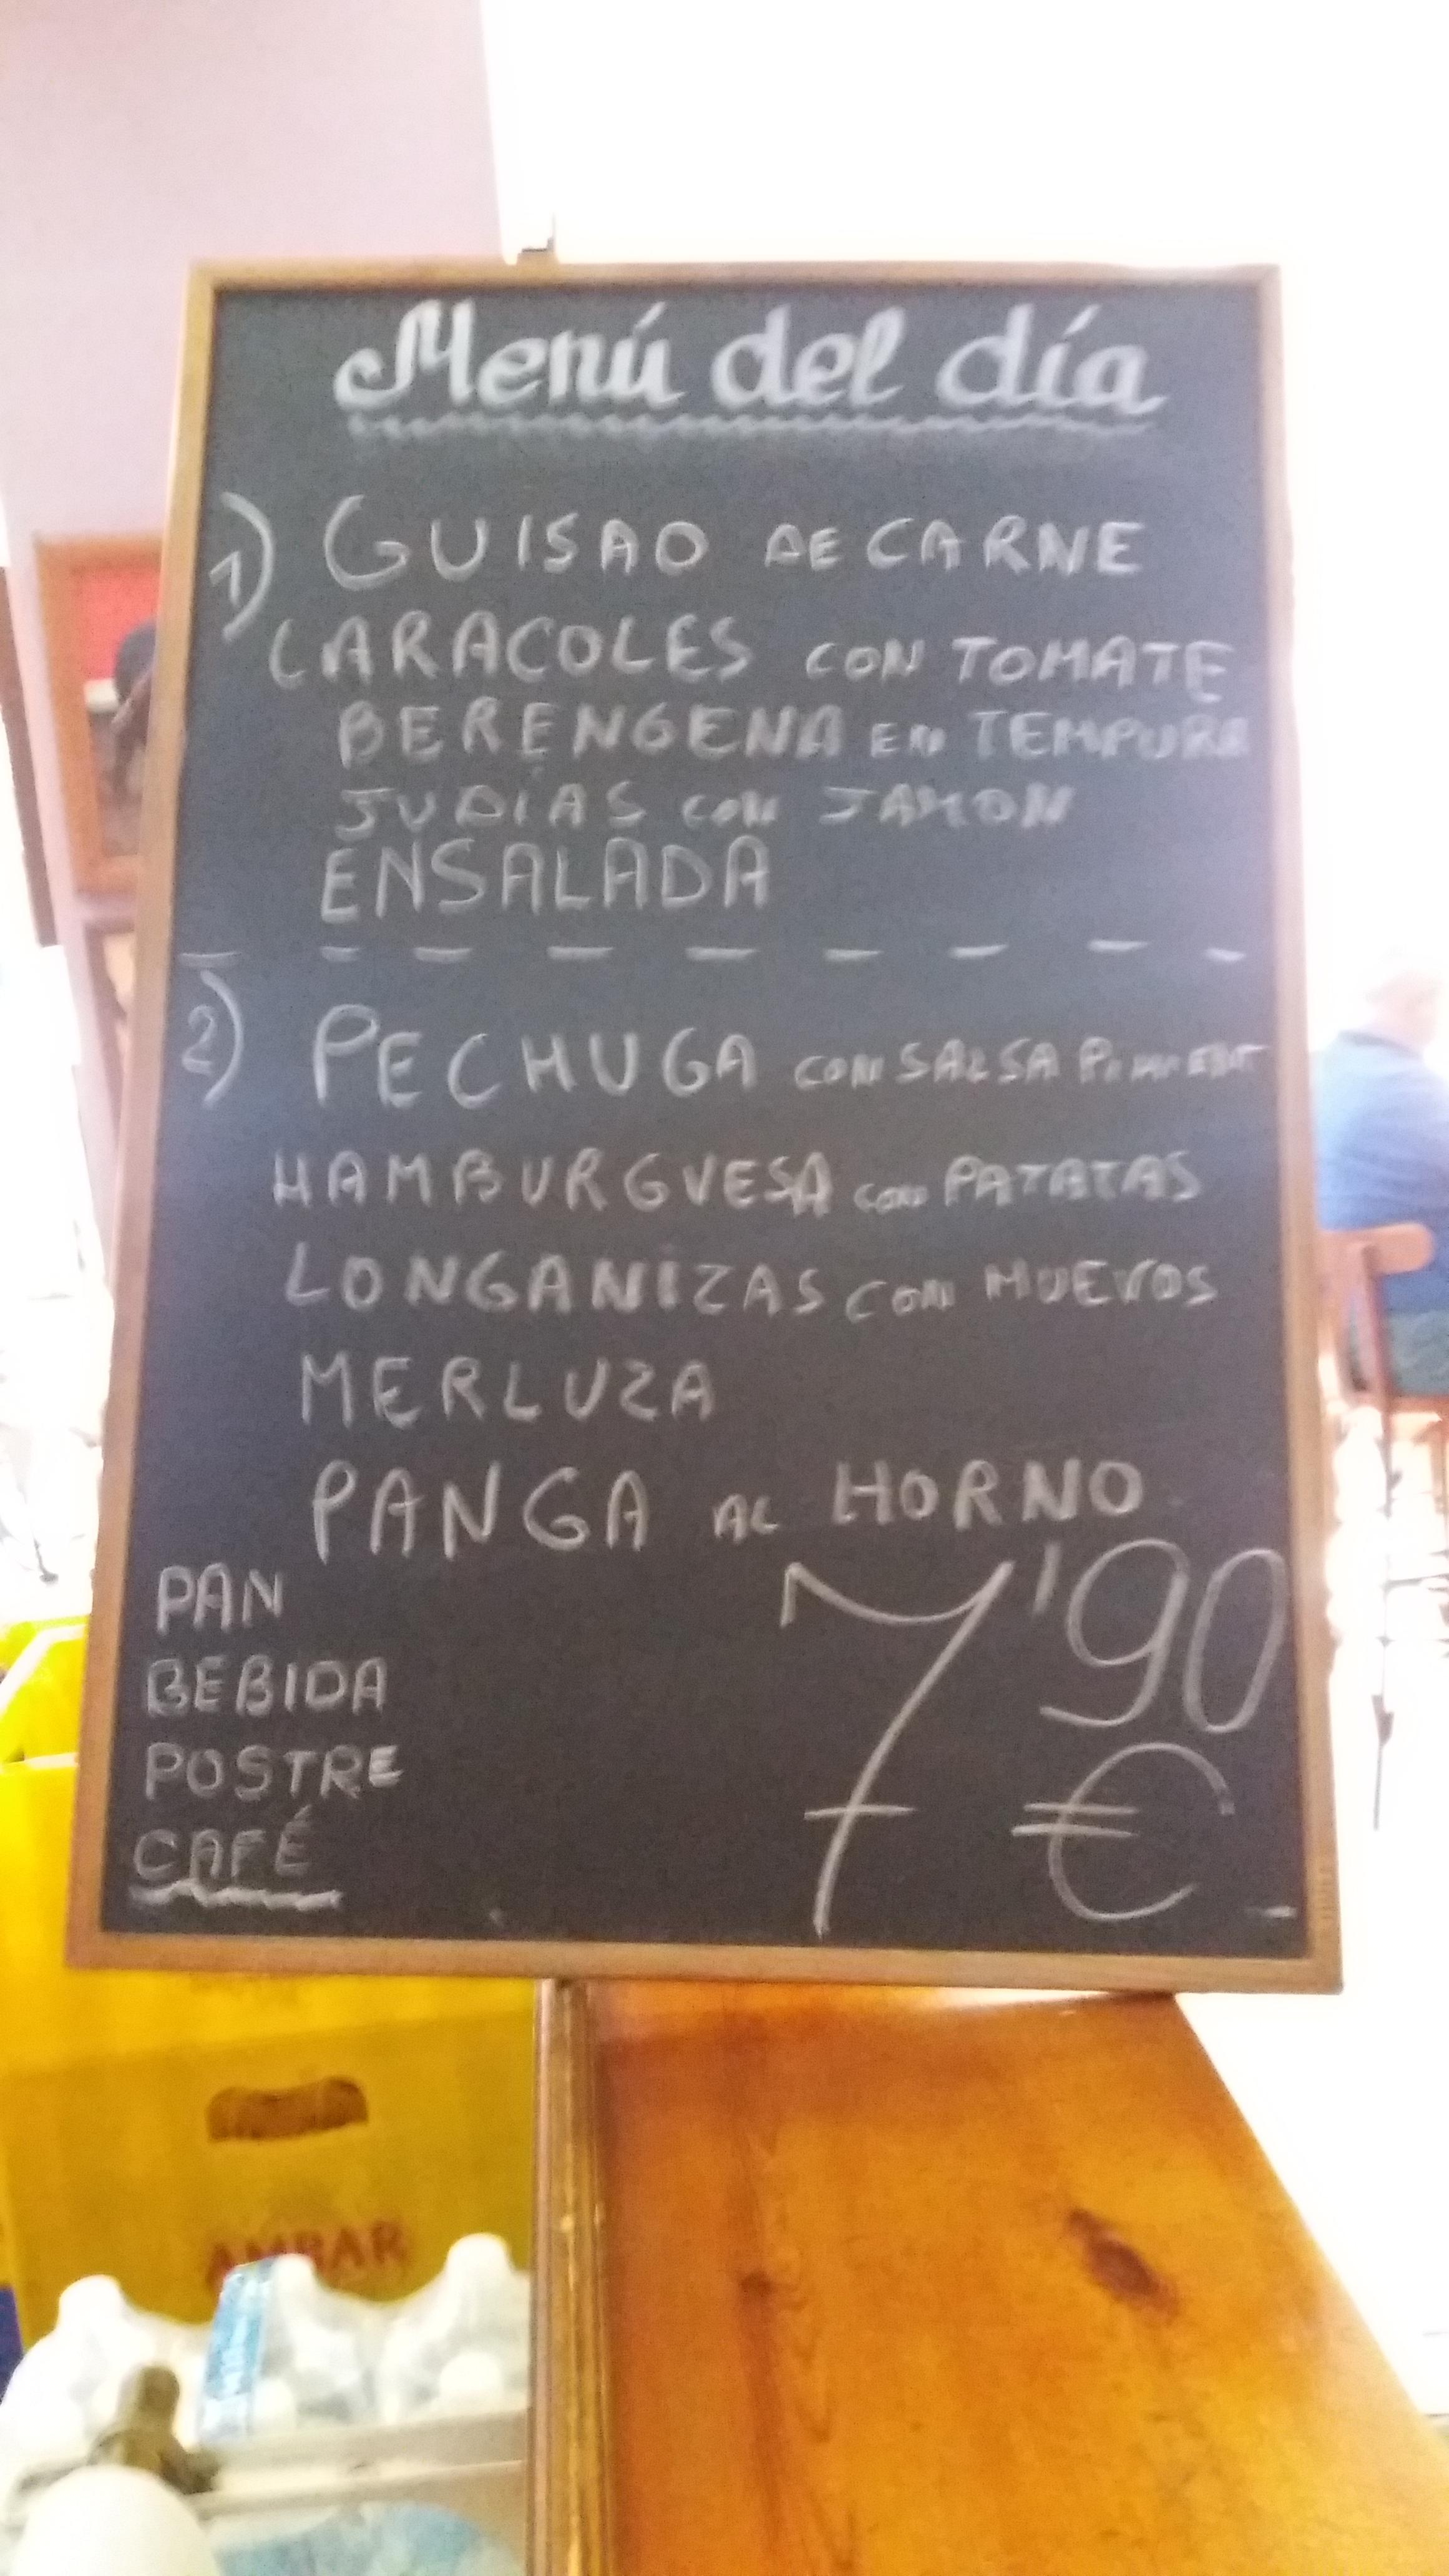 Menú del día
1) GUISAO DE CARNE
CARACOLES CON TOMATE
BERENGENA EN TEMPURA
JUDÍAS CON JAMON
ENSALADA
2) PECHUGA CON SALSA PIMIENT
HAMBURGUESA CON PATATAS
LONGANIZAS CON HUEVOS
MERLUZA
PANGA AL HORNO
PAN
BEBIDA
POSTRE
CAFÉ
7'90
€
AMBAR